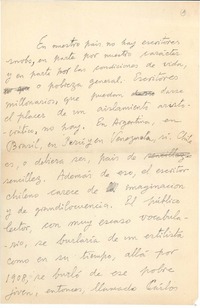 En nuestro país no hay escritores
snobs, en parte por nuestro carácter
y en parte por las condiciones de vida,
o pobreza general. Escritores
millonarios, que puedan darse
el placer de un aislamiento
no hay. En Argentina, en
Brasil, en Perú y en Venezuela, sí. Chile
es, o debiera ser, país de
sencillez. Además de eso, el escritor
chileno carece de imaginación
y de grandilocuencia. El público
lector, con muy escaso vocabula-
rio, se burlaría de un artista
como en su tiempo, allá por
1908, se burló de ese pobre
joven, entonces, llamado Carlos